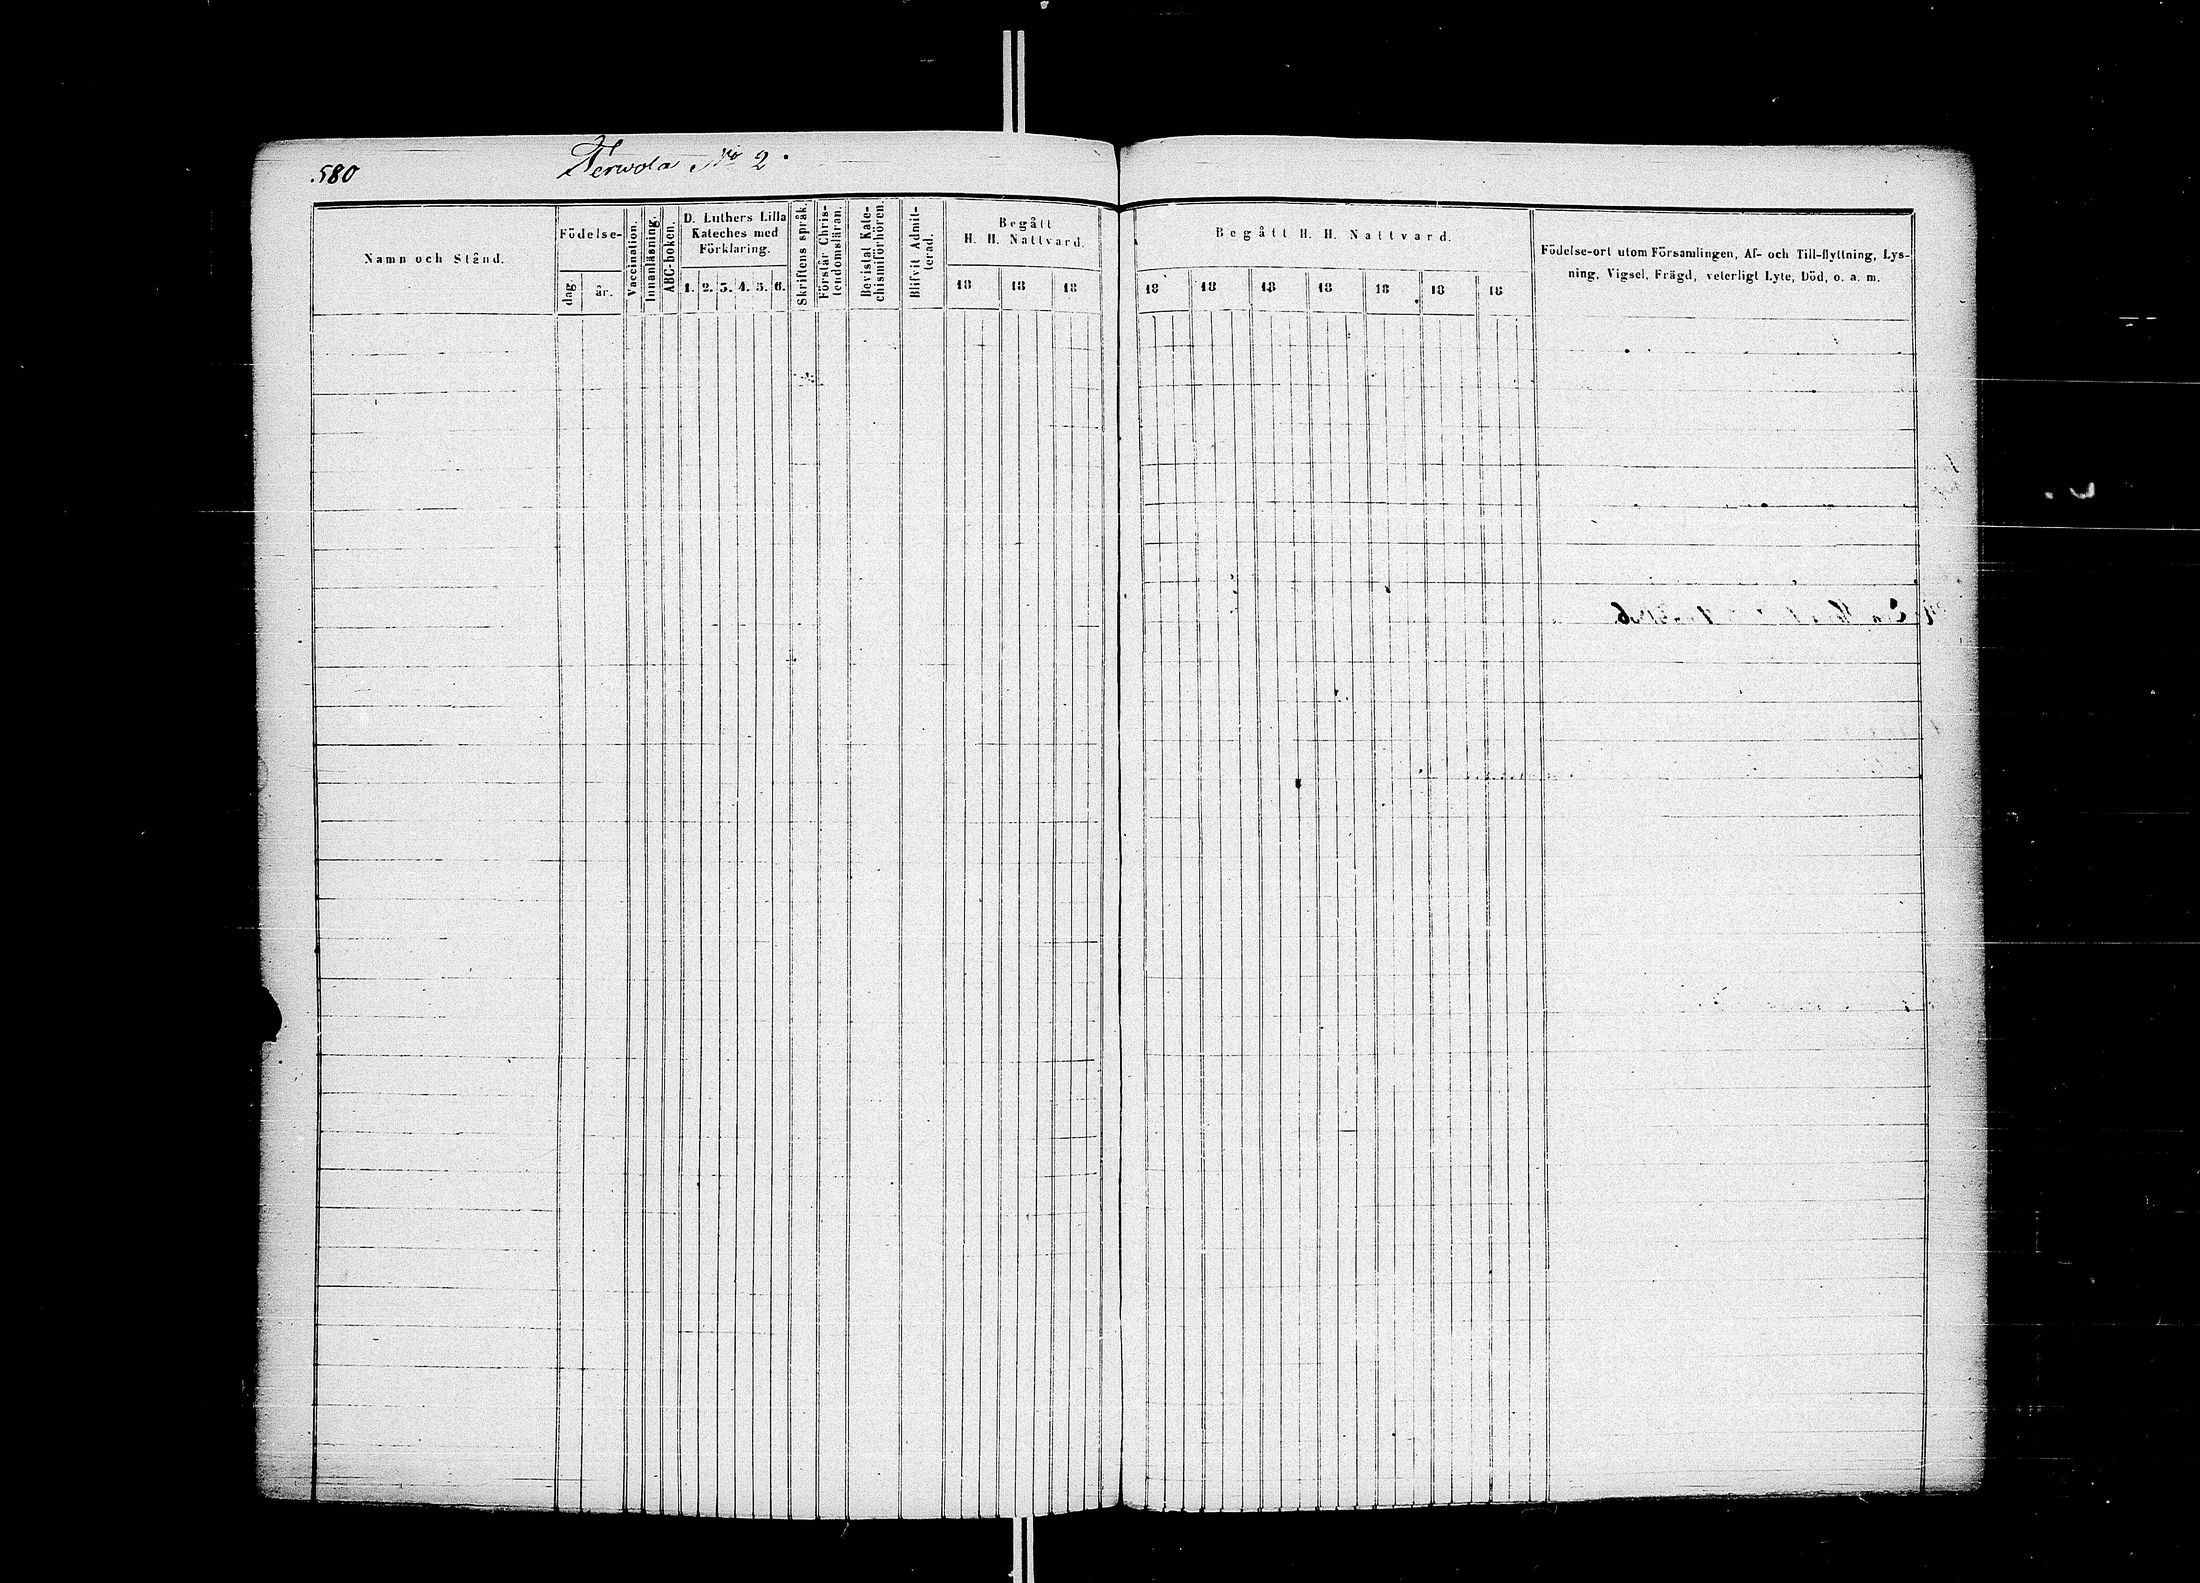 580
Terwola No 2.
Namn och Stånd.
Födelse-
dag
år.
Vaccination.
Innanläsning.
ABC-boken.
D. Luthers Lilla
Kateches med
Förklaring.
1. 2. 3. 4. 5. 6.
Skriftens språk.
Förstår Chris-
tendomsläran.
Bevistat Kate-
chismiförhören.
Blifvit Admit-
terad.
Begått
H. H. Nattvard.
18 18 18
Begått H. H. Nattvard.
18 18 18 18 18 18 18
Födelse-ort utom Församlingen, Af- och Till-flyttning, Lys-
ning, Vigsel, Frägd, veterligt Lyte, Död, o. a. m.